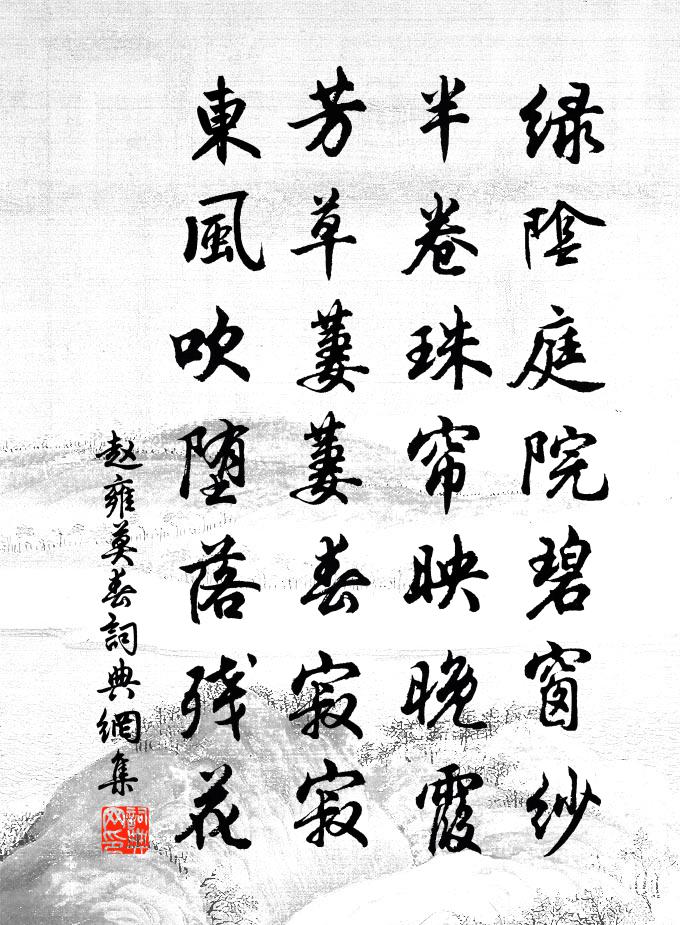 緑陰庭院碧窗紗
半卷珠帘映晚霞
芳草萋萋春寂寂
東風吹堕落残花
赵雍莫春詞典網集
詞典网印